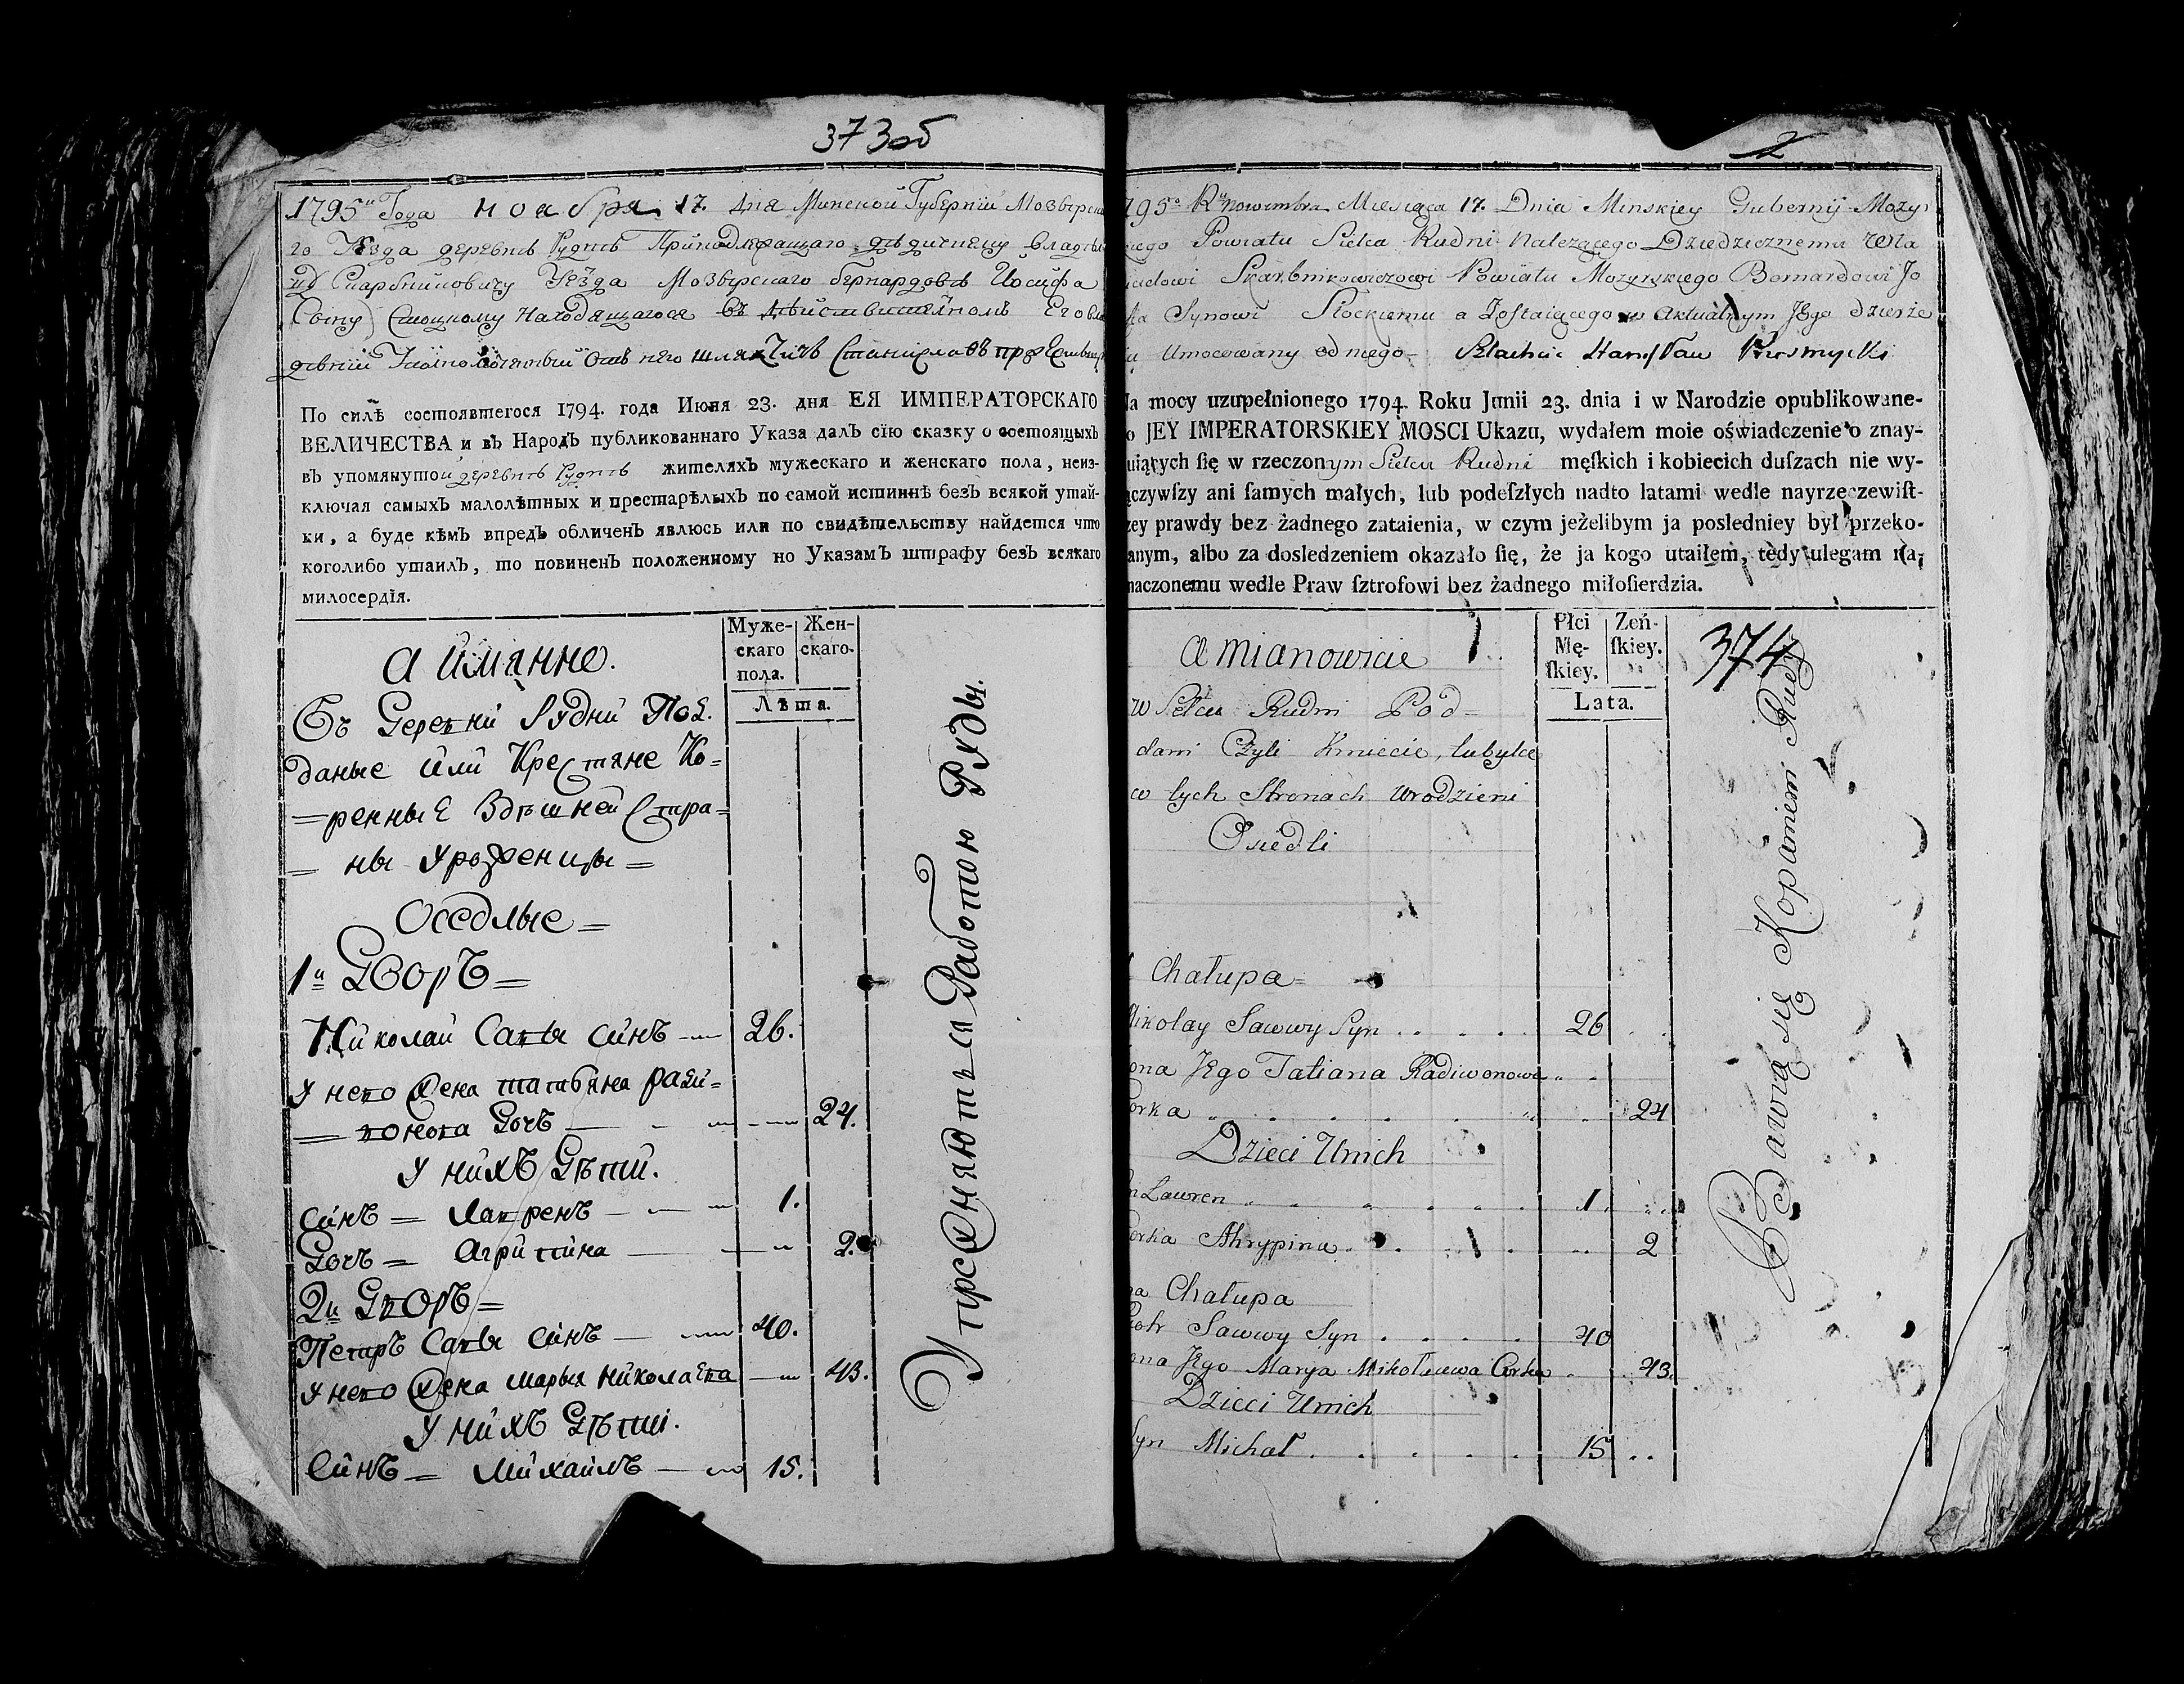 373об
1795го Года ноября 17. дня Минской Губернии Мозырска
го Уезда деревне Рудне Принадлежащаго дедичнему владель
цу Скарбниковичу Уезда Мозырскаго Бернардове Иосифа
Сыну Стоцкому Находящагося въ действителномъ Его вла
дѣнии от него шляхтичъ Станиславъ
По силѣ состоявшегося 1794. года Июня 23. дня ЕЯ ИМПЕРАТОРСКАГО
ВЕЛИЧЕСТВА и въ Народъ публикованнаго Указа далъ сїю сказку о состоящыхъ
въ упомянутой деревне Рудне жителяхъ мужескаго и женскаго пола, неиз-
ключая самыхъ малолѣтныхъ и престарѣлыхъ по самой истиннѣ безъ всякой утай-
ки, а буде кѣмъ впредь обличенъ явлюсь или по свидѣтельству найдется что
коголибо утаилъ, то повиненъ положенному по Указамъ штрафу безъ всякаго
милосердїя.
а имянно.
Муже-
скаго
пола.
Жен-
скаго.
Лѣта.
Въ Деревни Рудни Под.
даные или Крестяне Ко=
=ренные Здѣшней Стра=
= ны Уроженцы =
Оседлые =
1й Дворъ =
Николай Савы синъ 26.
У него жена татьяна ради=
= вонова Дочъ 24.
У нихъ Дѣти.
синъ = Лавренъ 1.
Дочъ = Агрипина 2.
2й Дворъ =
Петръ Савы синъ 40.
У него жена марья николаева 43.
У нихъ Дѣти.
Синъ = Михаилъ 15.
Упражняютъся Работою Руды.
2
795o Ru Nowembra Miesiąca 17. Dnia Minskiey Gubernij Mozy
kiego Powiatu Sielca Rudni Nalezącego Dziedzicznemu Wła
cielowi Skarbnikowiczowi Powiatu Mozyrskiego Bernardowi Jo
fa Synowi Stockiemu a Zostaiącego w Aktualnym Jego dzierże
iu Umocowany od niego Szlachcic Stanisław
Na mocy uzupełnionego 1794. Roku Junii 23. dnia i w Narodzie opublikowane-
o JEY IMPERATORSKIEY MOSCI Ukazu, wydałem moie oświadczenie o znay-
uiących ſię w rzeczonym Sielcu Rudni męſkich i kobiecich duſzach nie wy-
ączywſzy ani ſamych małych, lub podeſzłych nadto latami wedle nayrzeczewiſt-
zey prawdy bez żadnego zataienia, w czym jeżelibym ja posledniey był przeko-
anym, albo za dosledzeniem okazało ſię, że ja kogo utaiłem, tedy ulegam na-
naczonemu wedle Praw ſztrofowi bez żadnego miłoſierdzia.
a mianowicie
Płci
Mę-
ſkiey.
Zeń-
ſkiey.
Lata.
374
w Sielcu Rudni Pod=
dani Czyli Kmiecie, tubylce
w tych Stronach Urodzieni
Osiedli
Chałupa =
Nikolay Sawwy Syn 26
ona Jego Tatiana Radiwonowa
orka 24
Dzieci Unich
n Lawren 1.
orka Ahrypina 2
a Chałupa
iotr Sawwy Syn 40
ona Jego Marya Mikołaiewa Corka 43.
Dzieci Unich
Syn Michał 15
Bawią się Kopaniem Rudy